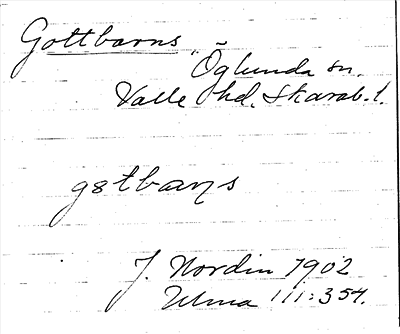 Gottbarns
Öglunda sn.
Valle hd. Skarab. l.
gotbaɳs
J. Nordin 1902
Ulma 111:354.